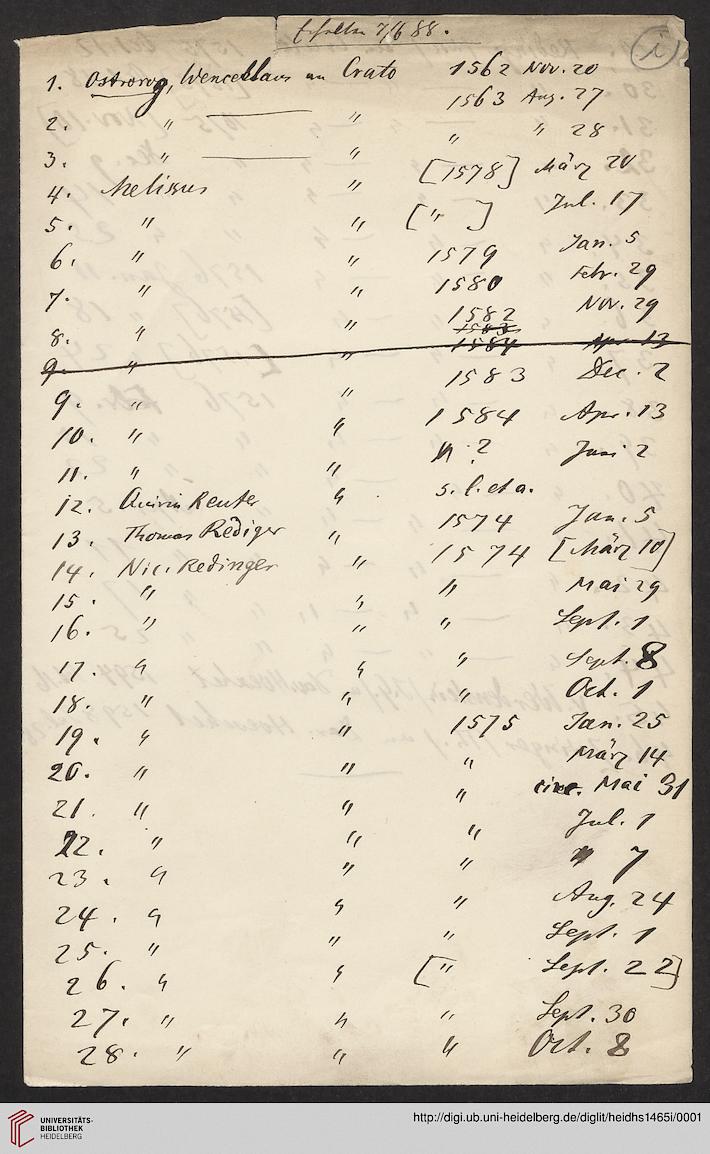 Erhalten 7/6 88.
i
1. Ostrorog, Wenceslaus an Crato 1562 Nov. 20
2. " —— " 1563 Aug. 27
3. " —— " " " 28
4. Melissus " [1578] März 20
5. " " [" ] Jul. 17
6. " " 1579 Jan. 5
7. " " 1580 Febr. 29
8. " " 1582 Nov. 29
1583
9. " " 1584 Apr. 13
9. " " 1583 Dec. 2
10. " " 1584 Apr. 13
11. " " " ? Juni 2
12. Quirin Reuter " s. l. et a.
13. Thomas Rediger " 1574 Jan. 5
14. Nic. Redinger " 1574 [März 10]
15. " " " Mai 29
16. " " " Sept. 1
17. " " " Sept. 8
18. " " " Oct. 1
19. " " 1575 Jan. 25
20. " " " März 14
21. " " " circ. Mai 31
22. " " " Jul. 1
23. " " " " 7
24. " " " Aug. 24
25. " " " Sept. 1
26. " " [" Sept. 22]
27. " " " Sept. 30
28. " " " Oct. 8
UNIVERSITÄTS-
BIBLIOTHEK
HEIDELBERG
http://digi.ub.uni-heidelberg.de/diglit/heidhs1465i/0001